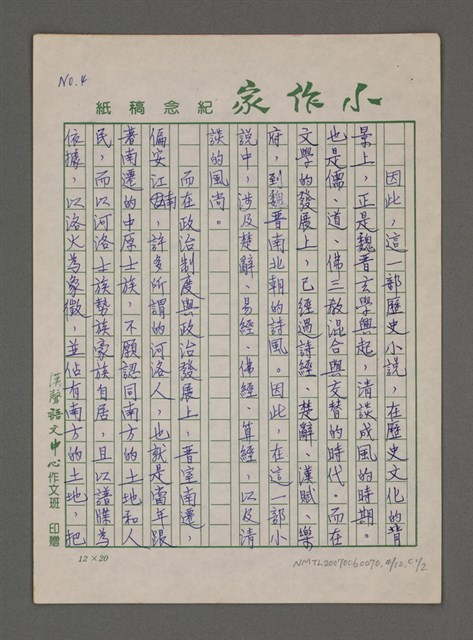 NO.4
小作家
紀念稿紙
因此，這一部歷史小說，在歷史文化的背
景上，正是魏晉玄學興起，清談成風的時期。
也是儒、道、佛三教混合與交替的時代。而在
文學的發展上，已經過詩經、楚辭、漢賦、樂
府，到魏晉南北朝的詩風。因此，在這一部小
說中，涉及楚辭、易經、佛經、算經，以及清
談的風尚。
而在政治制度與政治發展上，晉室南遷，
偏安江南，許多所謂的河洛人，也就是當年跟
著南遷的中原士族，不願認同南方的土地和人
民，而以河洛士族勢族豪族自居，且以譜牒為
依據，以洛火為象徵，並佔有南方的土地，把
漢聲語文中心作文班 印贈
12×20
NMTL20070060070,4/12,C1/2